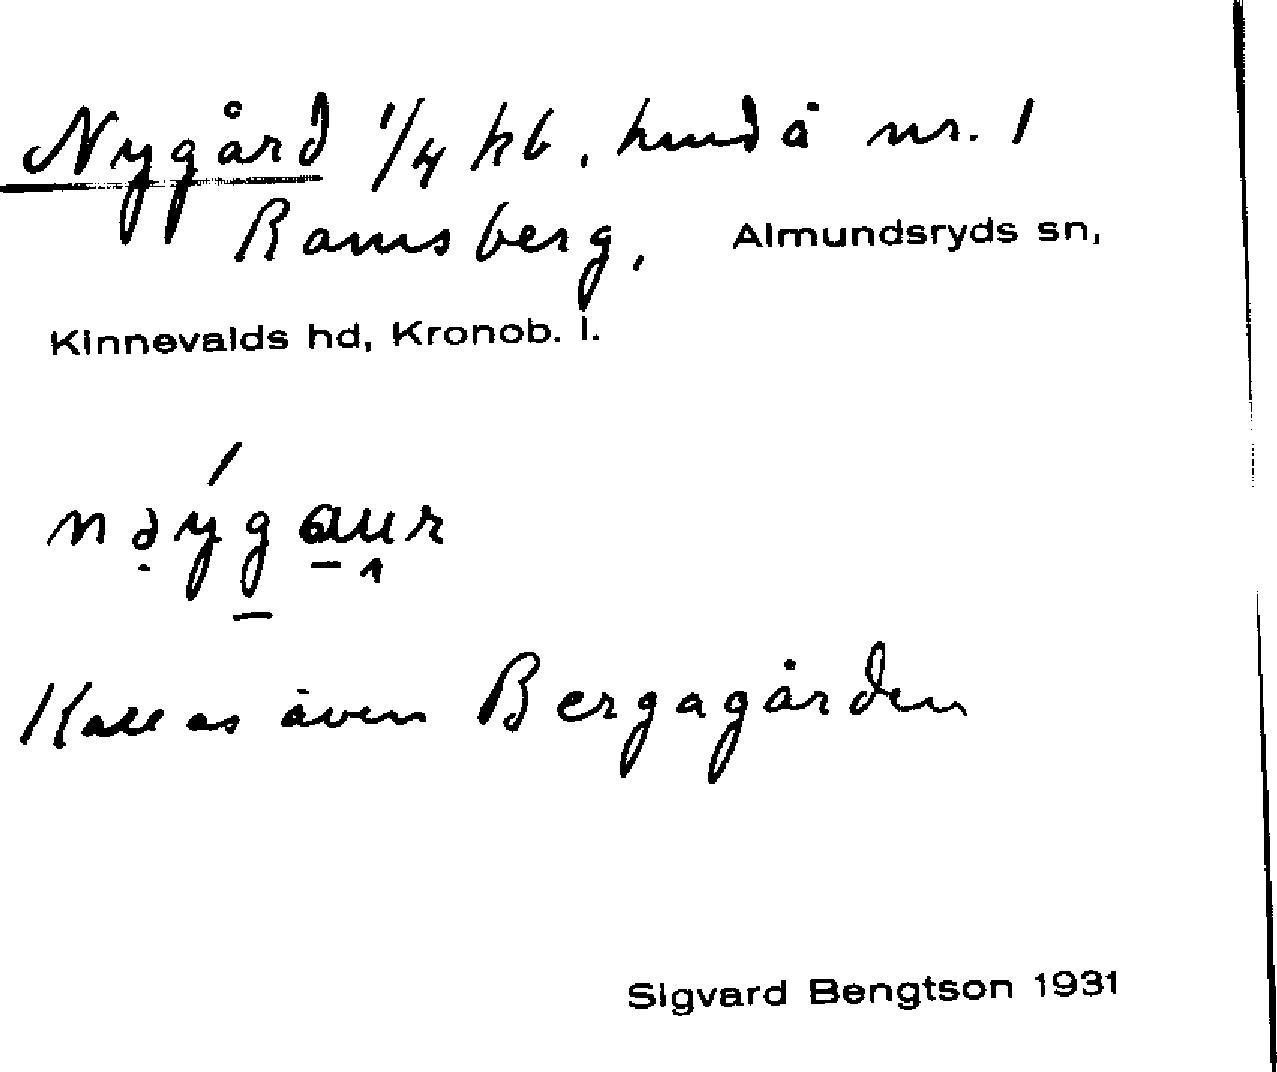 Nygård 1/4 hb. hmd å nr. 1
Ramsberg, Almundsryds sn,
Kinnevalds hd, Kronob. l.
Kallas även Bergagården
Sigvard Bengtson 1931